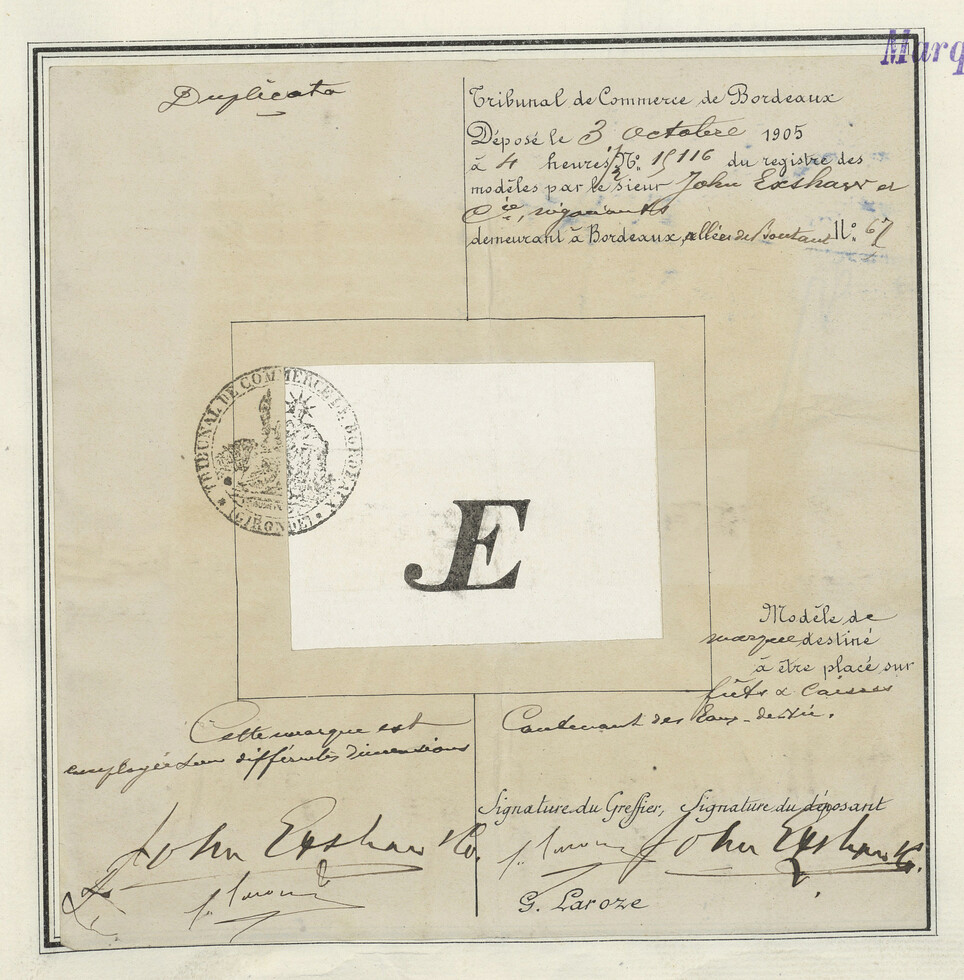 Marq
Duplicata
Tribunal de Commerce de Bordeaux
Déposé le 3 octobre 1905
à 4 heures ½ No. 15116 du registre des
modèles par le sieur John Exshaw et
Cie, négociants
demeurant à Bordeaux, allées de Boutaut No. 67
TRIBUNAL DE COMMERCE DE BORDEAUX
(GIRONDE)
JE
Modèle de
marque destiné
à être placé sur
fûts & Caisses
Contenant des Eaux-de-vie.
Cette marque est
employée en différentes dimensions
Signature du Greffier, Signature du déposant
John Exshaw & Co.
John Exshaw & Co.
G. Laroze